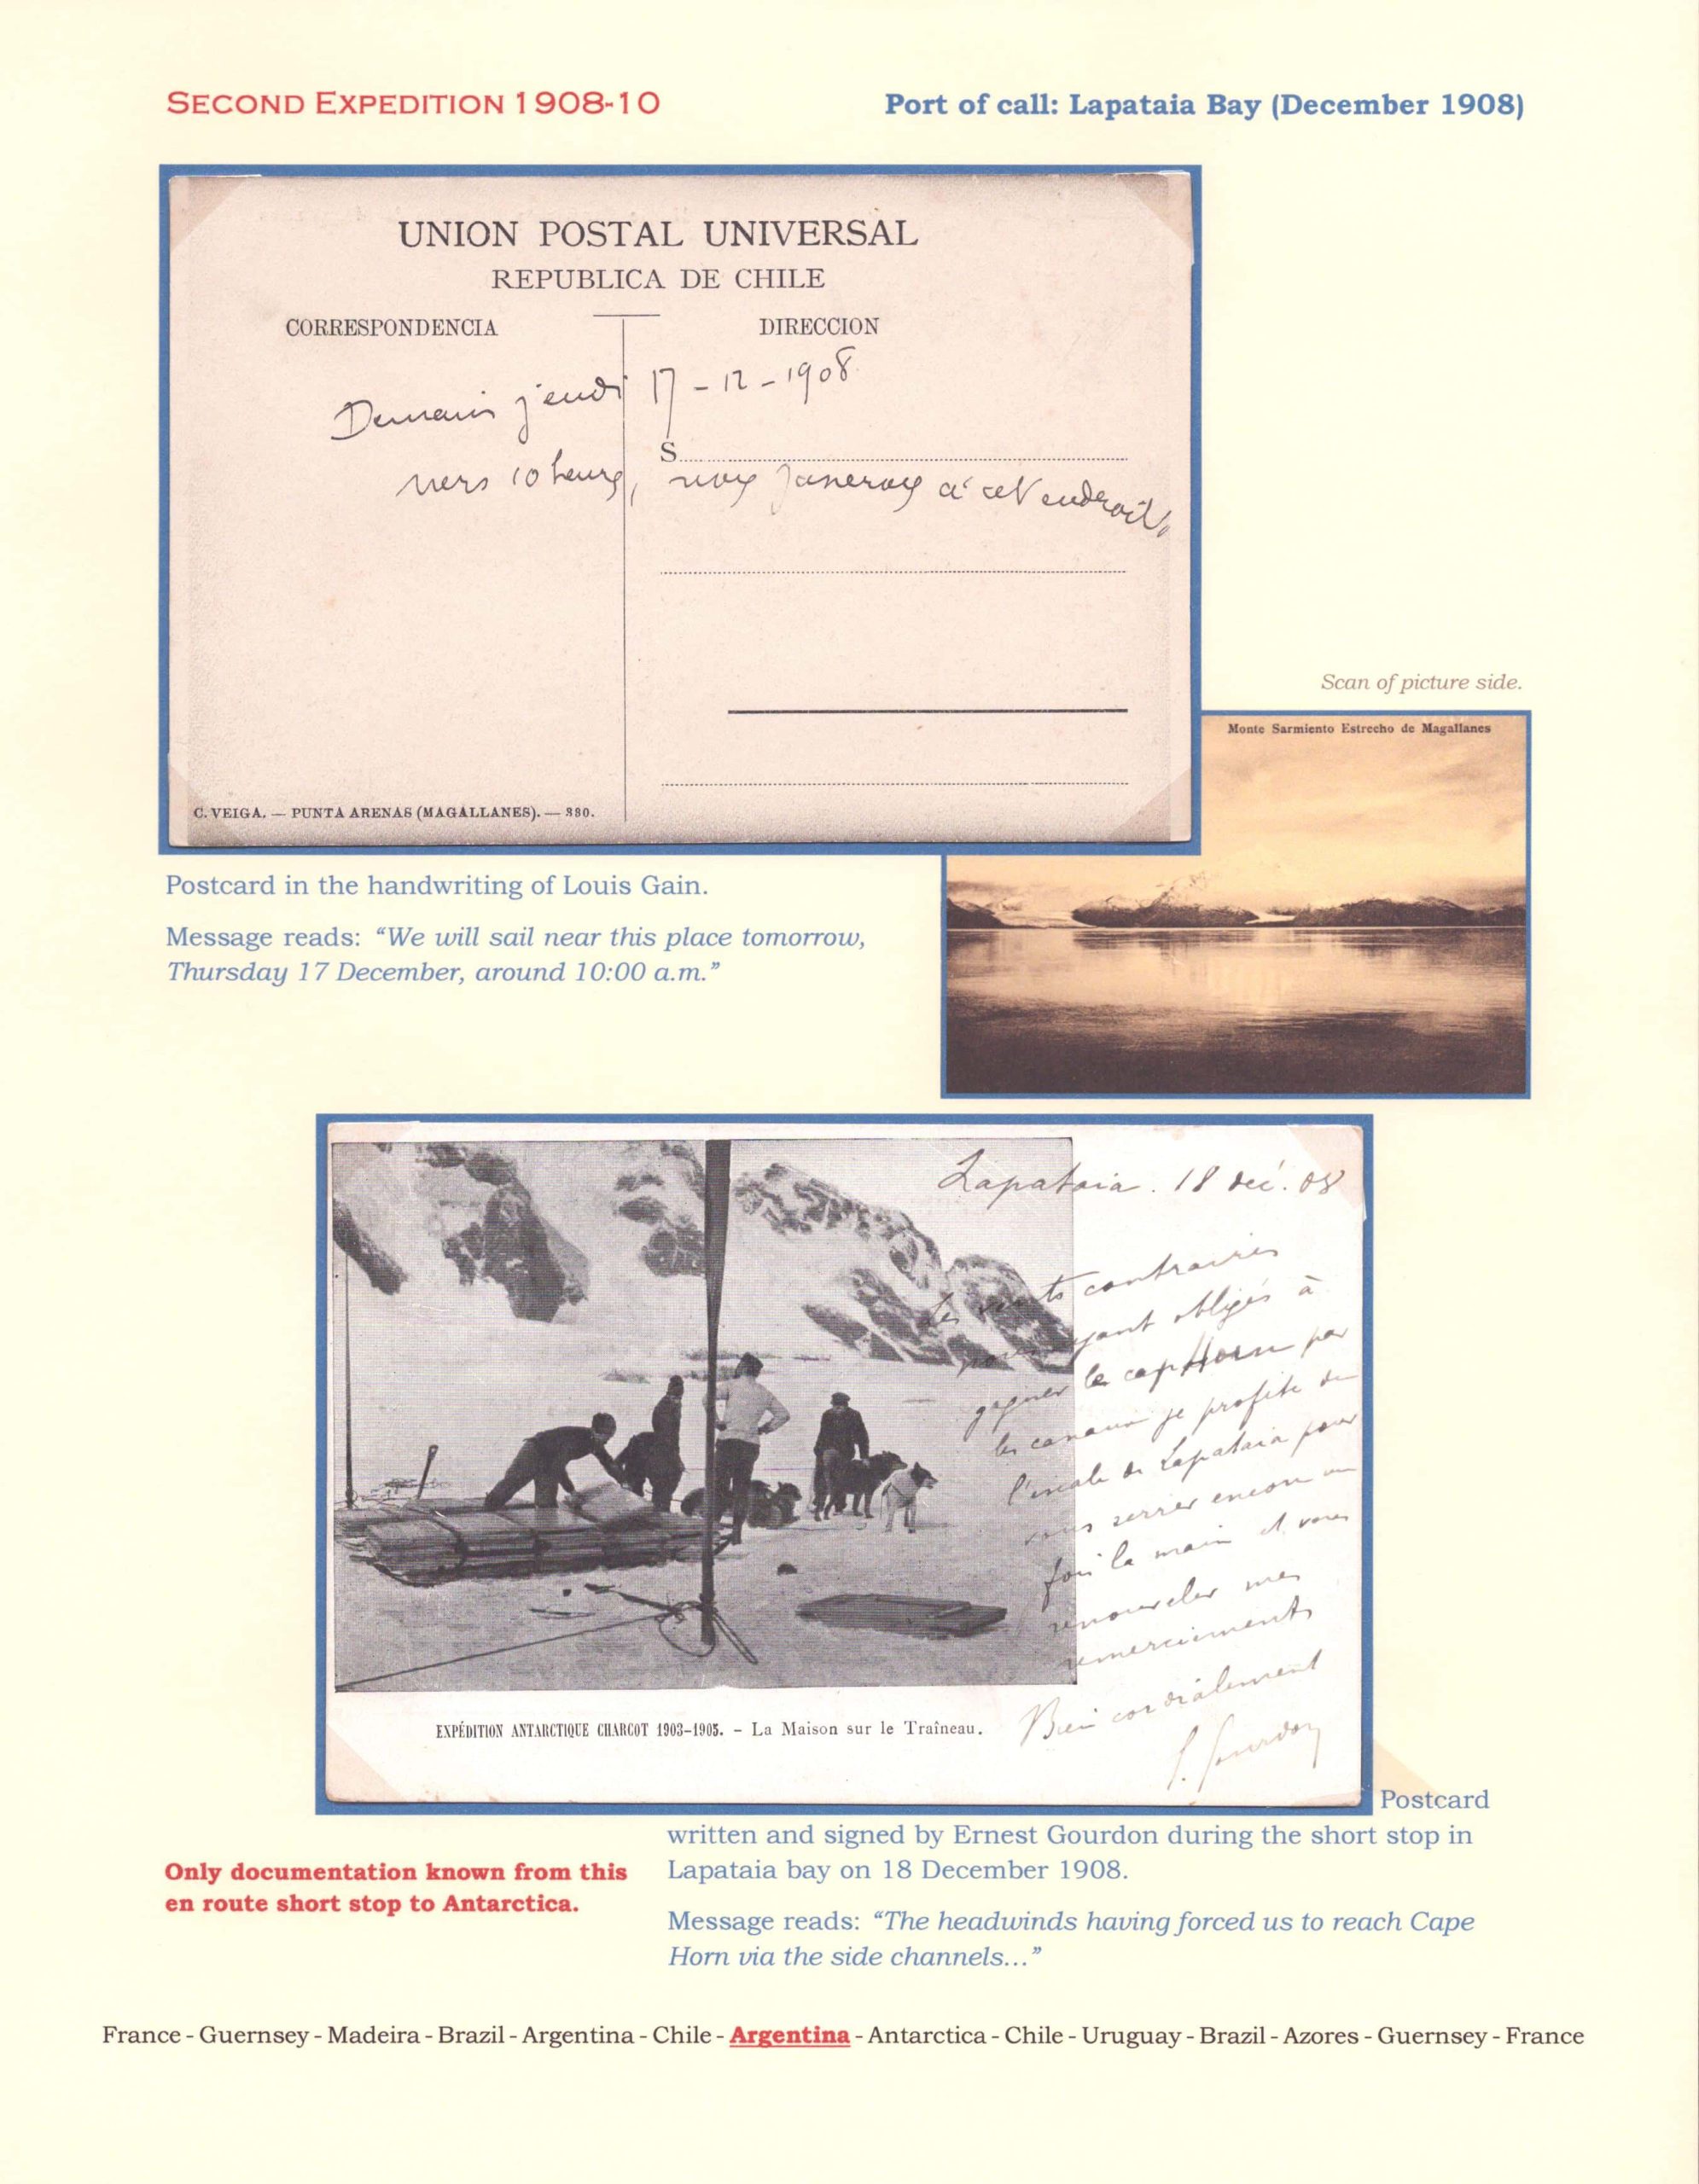 SECOND EXPEDITION 1908-10
Port of call: Lapataia Bay (December 1908)
UNION POSTAL UNIVERSAL
REPUBLICA DE CHILE
CORRESPONDENCIA
DIRECCION
Demain jeudi 17-12-1908
S
vers 10 heures, nous passerons à cet endroit.
C. VEIGA. — PUNTA ARENAS (MAGALLANES). — 380.
Scan of picture side.
Monte Sarmiento Estrecho de Magallanes
Postcard in the handwriting of Louis Gain.
Message reads: “We will sail near this place tomorrow,
Thursday 17 December, around 10:00 a.m.”
Lapataia. 18 déc. 08
Les vents contraires
nous ayant obligés à
gagner le cap Horn par
les canaux je profite de
l'escale de Lapataia pour
vous serrer encore une
fois la main et vous
renouveler mes
remerciements
Bien cordialement
E. Gourdon
EXPÉDITION ANTARCTIQUE CHARCOT 1903-1905. - La Maison sur le Traîneau.
Postcard
written and signed by Ernest Gourdon during the short stop in
Lapataia bay on 18 December 1908.
Only documentation known from this
en route short stop to Antarctica.
Message reads: “The headwinds having forced us to reach Cape
Horn via the side channels...”
France - Guernsey - Madeira - Brazil - Argentina - Chile - Argentina - Antarctica - Chile - Uruguay - Brazil - Azores - Guernsey - France